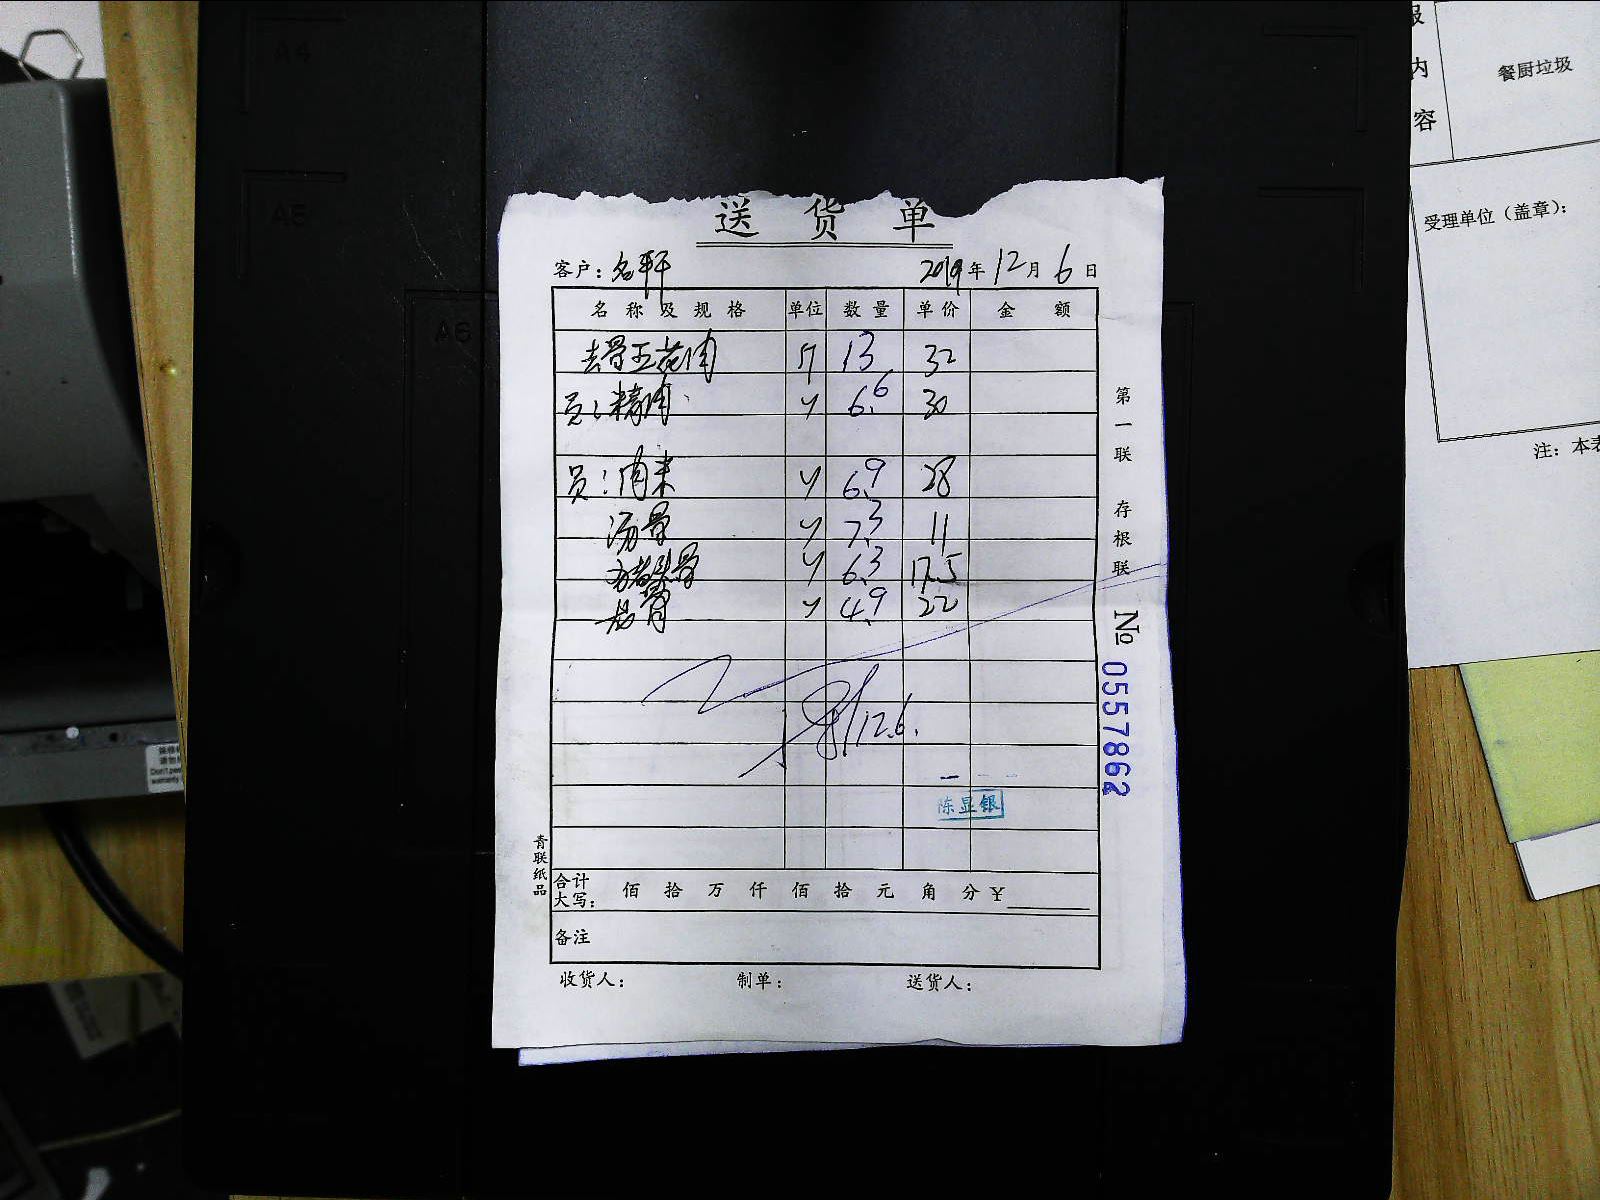 送货单
客户：名轩 2019年12月6日
名称及规格 单位 数量 单价 金额
去骨五花肉 斤 13 32
员：精肉 6.6 30
员：肉末 6.9 28
汤骨 7.3 11
猪头骨 6.3 17.5
4.9 22
12.6.
陈显银
合计大写： 佰 拾 万 仟 佰 拾 元 角 分 ￥
备注
收货人： 制单： 送货人：
第一联 存根联
№ 0557862
青联纸品
A4
A5
A6
内容
餐厨垃圾
受理单位（盖章）：
注：本表